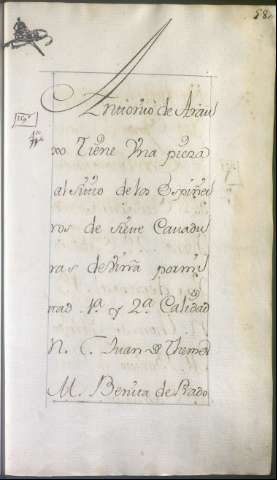 58
Antonio de Arau
xo Tiene Vna pieza
al sitio de los Espiñei
ros de siette Cauadu
ras de viña por mi
tad 1ª y 2ª Calidad
N. C. Juan de Themes
M. Benita de Prado